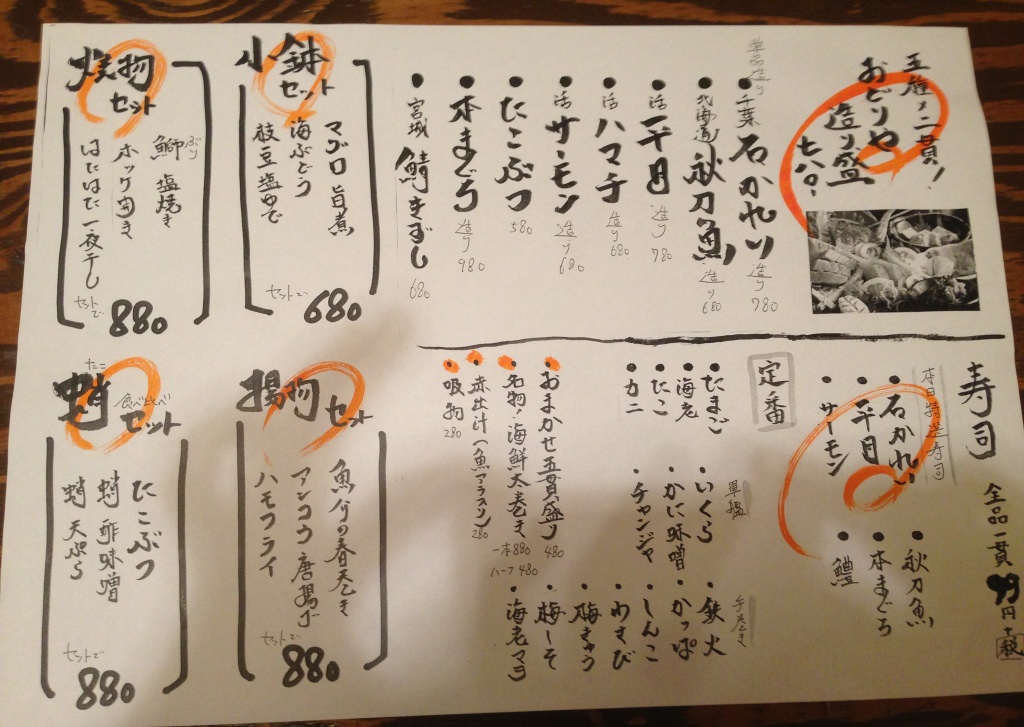 おどりや
造り盛
単品造り
・千葉 石かれい 造り 780
・北海道 秋刀魚 造り 680
・活 平目 造り 780
・活 ハマチ 造り 680
・活 サーモン 造り 680
・たこぶつ 580
・本まぐろ 造り 980
・宮城 鯖きずし 680
小鉢
セット
マグロ旨煮
海ぶどう
枝豆塩ゆで
セットで 680
焼物
セット
鰤 塩焼き
ぶり
ホッケ開き
はたはた一夜干し
セットで 880
寿司
全品一貫 円+税
本日特選寿司
・石かれい
・平目
・サーモン
・秋刀魚
・本まぐろ
・鱧
定番
・たまご
・海老
・たこ
・カニ
軍艦
・いくら
・かに味噌
・チャンジャ
手巻き
・鉄火
・かっぱ
・しんこ
・わさび
・梅きゅう
・梅しそ
・海老マヨ
・おまかせ五貫盛り 480
・名物!海鮮太巻き 一本880 ハーフ480
・赤出汁(魚アラ入り) 280
・吸物 280
揚物セット
魚介の春巻き
アンコウ唐揚げ
ハモフライ
セットで 880
たこ
蛸食べ比べセット
たこぶつ
蛸酢味噌
蛸天ぷら
セットで 880